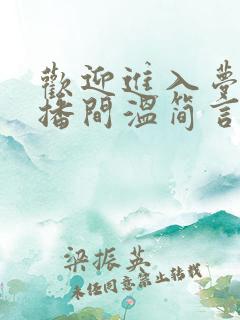 歡迎進入夢
播間溫简言
梁振英
未经同意禁止转载